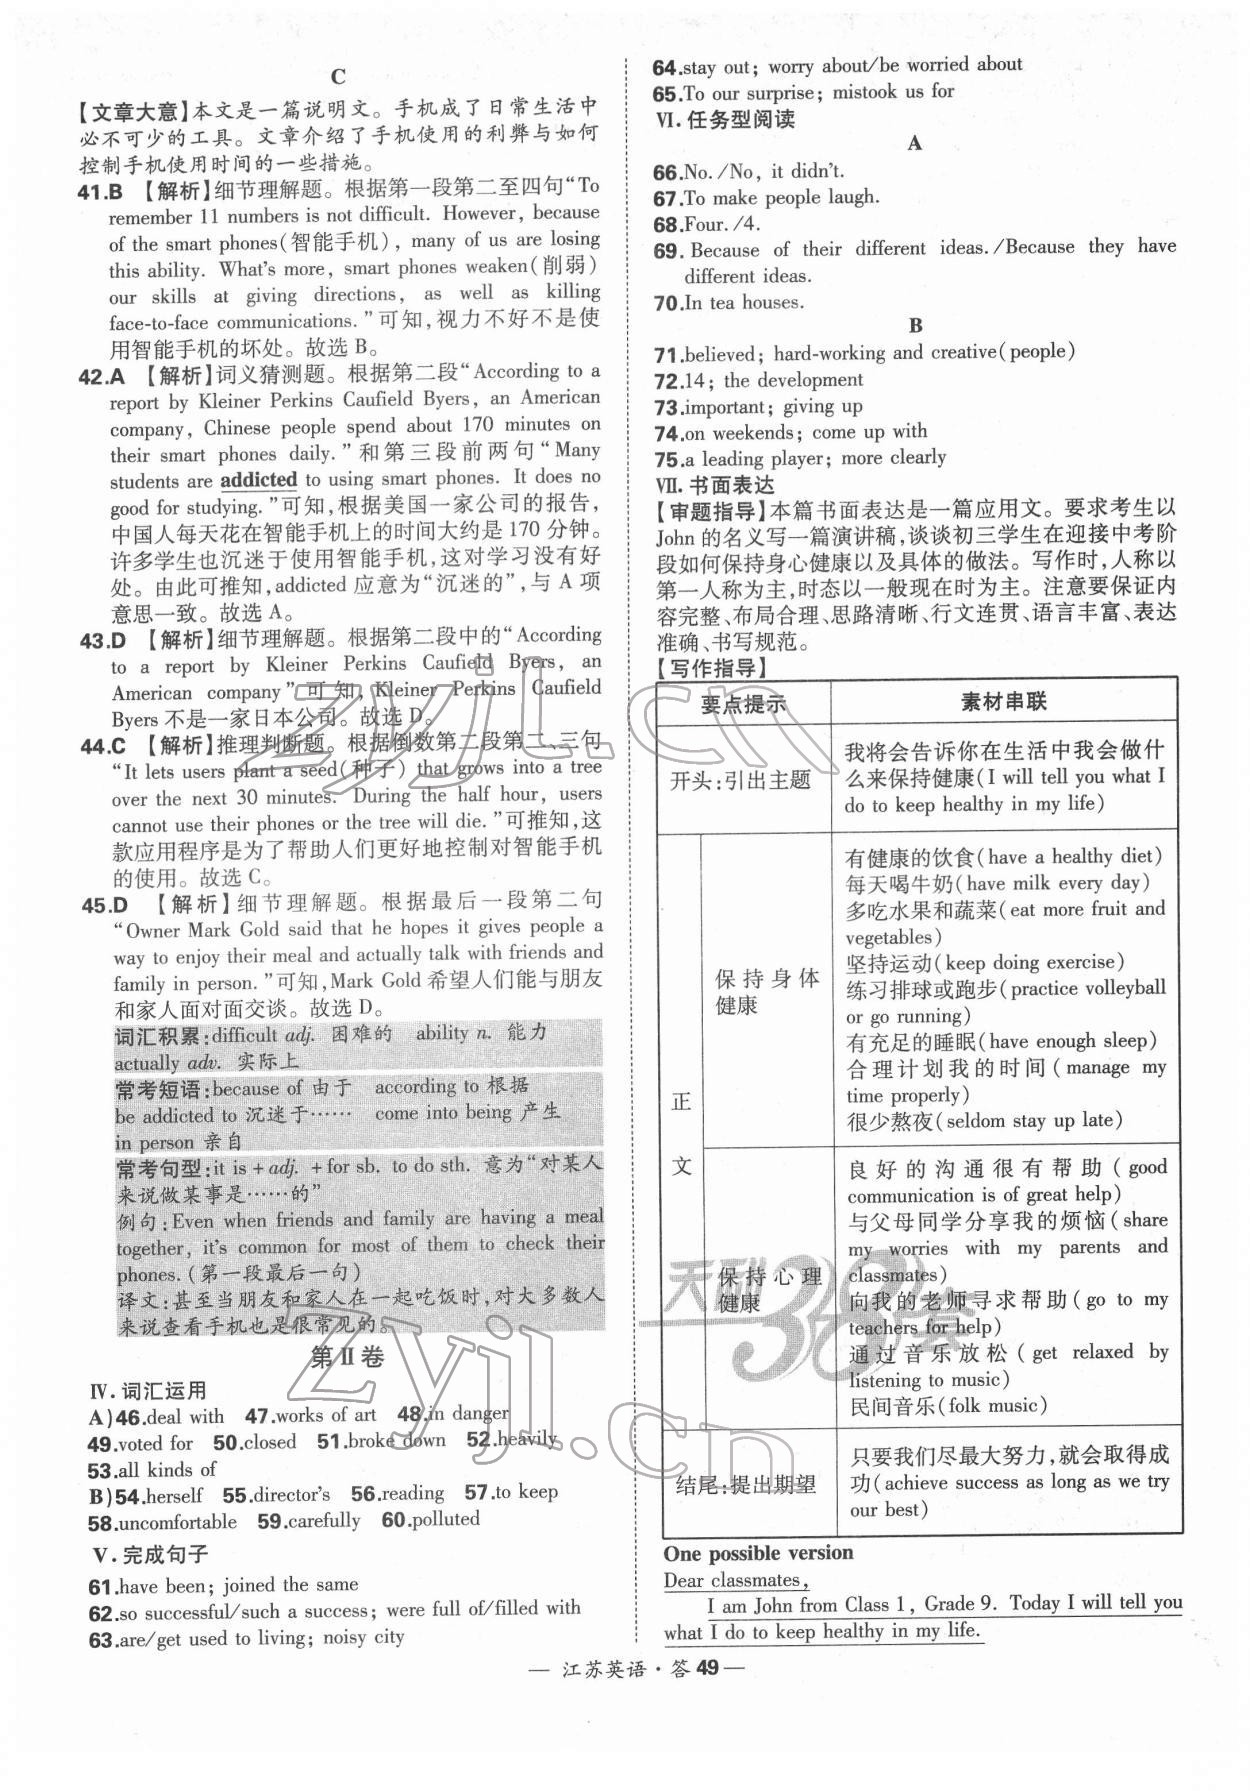 C
【文章大意】本文是一篇说明文。手机成了日常生活中
必不可少的工具。文章介绍了手机使用的利弊与如何
控制手机使用时间的一些措施。
41.B 【解析】细节理解题。根据第一段第二至四句“To
remember 11 numbers is not difficult. However, because
of the smart phones(智能手机), many of us are losing
this ability. What's more, smart phones weaken(削弱)
our skills at giving directions, as well as killing
face-to-face communications.”可知,视力不好不是使
用智能手机的坏处。故选 B。
42.A 【解析】词义猜测题。根据第二段“According to a
report by Kleiner Perkins Caufield Byers, an American
company, Chinese people spend about 170 minutes on
their smart phones daily.”和第三段前两句“Many
students are addicted to using smart phones. It does no
good for studying.”可知,根据美国一家公司的报告,
中国人每天花在智能手机上的时间大约是 170 分钟。
许多学生也沉迷于使用智能手机,这对学习没有好
处。由此可推知,addicted 应意为“沉迷的”,与 A 项
意思一致。故选 A。
43.D 【解析】细节理解题。根据第二段中的“According
to a report by Kleiner Perkins Caufield Byers, an
American company”可知,Kleiner Perkins Caufield
Byers 不是一家日本公司。故选 D。
44.C 【解析】推理判断题。根据倒数第二段第二、三句
“It lets users plant a seed(种子) that grows into a tree
over the next 30 minutes. During the half hour, users
cannot use their phones or the tree will die.”可推知,这
款应用程序是为了帮助人们更好地控制对智能手机
的使用。故选 C。
45.D 【解析】细节理解题。根据最后一段第二句
“Owner Mark Gold said that he hopes it gives people a
way to enjoy their meal and actually talk with friends and
family in person.”可知,Mark Gold 希望人们能与朋友
和家人面对面交谈。故选 D。
词汇积累:difficult adj. 困难的 ability n. 能力
actually adv. 实际上
常考短语:because of 由于 according to 根据
be addicted to 沉迷于…… come into being 产生
in person 亲自
常考句型:it is + adj. + for sb. to do sth. 意为“对某人
来说做某事是……的”
例句:Even when friends and family are having a meal
together, it's common for most of them to check their
phones.(第一段最后一句)
译文:甚至当朋友和家人在一起吃饭时,对大多数人
来说查看手机也是很常见的。
第Ⅱ卷
Ⅳ.词汇运用
A)46.deal with 47.works of art 48.in danger
49.voted for 50.closed 51.broke down 52.heavily
53.all kinds of
B)54.herself 55.director's 56.reading 57.to keep
58.uncomfortable 59.carefully 60.polluted
Ⅴ.完成句子
61.have been; joined the same
62.so successful/such a success; were full of/filled with
63.are/get used to living; noisy city
64.stay out; worry about/be worried about
65.To our surprise; mistook us for
Ⅵ.任务型阅读
A
66.No. /No, it didn't.
67.To make people laugh.
68.Four. /4.
69. Because of their different ideas. /Because they have
different ideas.
70.In tea houses.
B
71.believed; hard-working and creative(people)
72.14; the development
73.important; giving up
74.on weekends; come up with
75.a leading player; more clearly
Ⅶ.书面表达
【审题指导】本篇书面表达是一篇应用文。要求考生以
John 的名义写一篇演讲稿,谈谈初三学生在迎接中考阶
段如何保持身心健康以及具体的做法。写作时,人称以
第一人称为主,时态以一般现在时为主。注意要保证内
容完整、布局合理、思路清晰、行文连贯、语言丰富、表达
准确、书写规范。
【写作指导】
要点提示 素材串联
开头:引出主题
我将会告诉你在生活中我会做什
么来保持健康(I will tell you what I
do to keep healthy in my life)
正
文
保持身体
健康
有健康的饮食(have a healthy diet)
每天喝牛奶(have milk every day)
多吃水果和蔬菜(eat more fruit and
vegetables)
坚持运动(keep doing exercise)
练习排球或跑步(practice volleyball
or go running)
有充足的睡眠(have enough sleep)
合理计划我的时间(manage my
time properly)
很少熬夜(seldom stay up late)
保持心理
健康
良好的沟通很有帮助(good
communication is of great help)
与父母同学分享我的烦恼(share
my worries with my parents and
classmates)
向我的老师寻求帮助(go to my
teachers for help)
通过音乐放松(get relaxed by
listening to music)
民间音乐(folk music)
结尾:提出期望
只要我们尽最大努力,就会取得成
功(achieve success as long as we try
our best)
One possible version
Dear classmates,
I am John from Class 1, Grade 9. Today I will tell you
what I do to keep healthy in my life.
— 江苏英语·答 49 —
zyjl.cn
zyjl.cn
天利38套